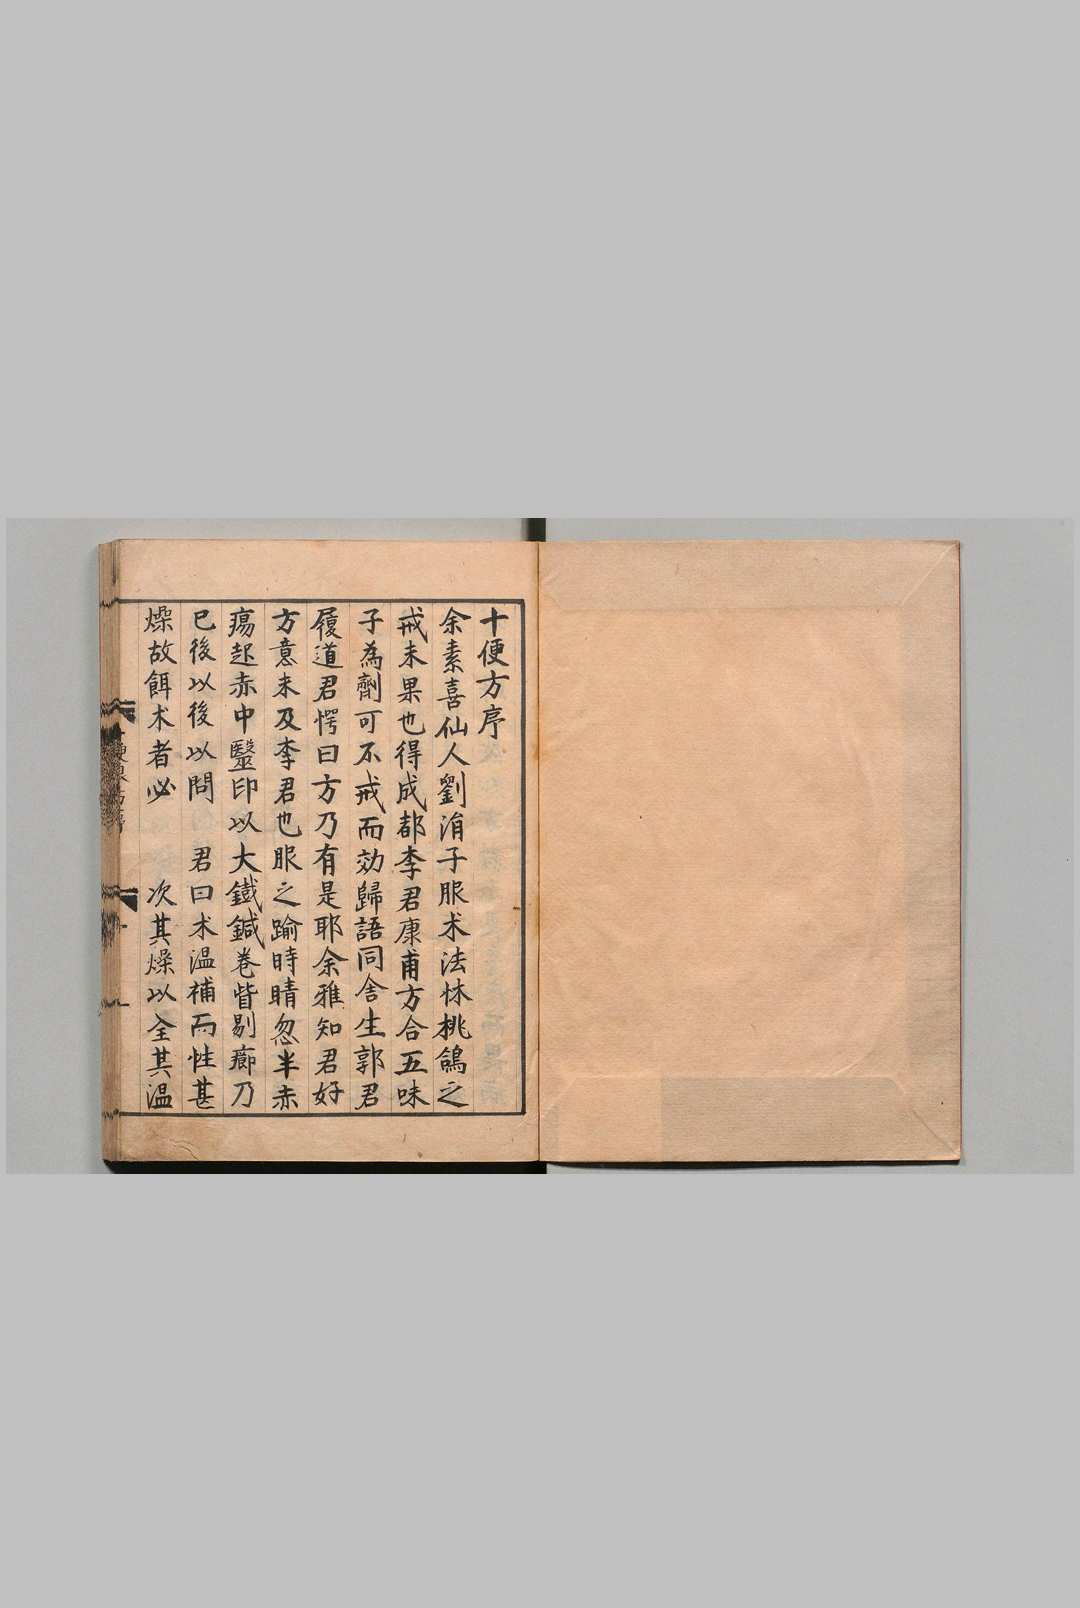 十便方序
余素喜仙人劉涓子服术法怵桃鴿之
戒未果也得成都李君康甫方合五味
子為劑可不戒而効歸語同舍生郭君
履道君愕曰方乃有是耶余雅知君好
方意未及李君也服之踰時睛忽半赤
瘍起赤中毉印以大鐵鍼卷眥剔癤乃
已後以後以問 君曰术温補而性甚
燥故餌术者必 次其燥以全其温